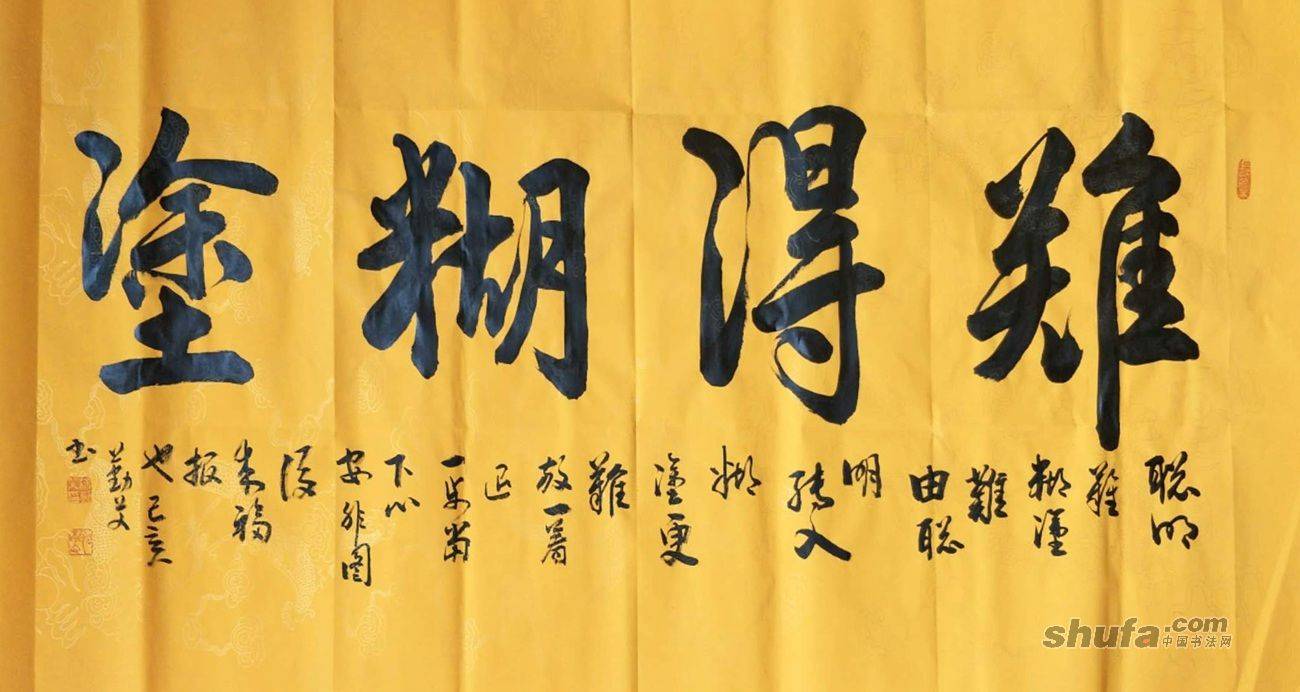 難得糊塗
聡明
難
糊塗
難
由聡
明
轉入
糊
塗更
難
放一著
退
一步當
下心
安非圖
後
来福
报
也己亥
勤艾
书
shufa.com
中国书法网